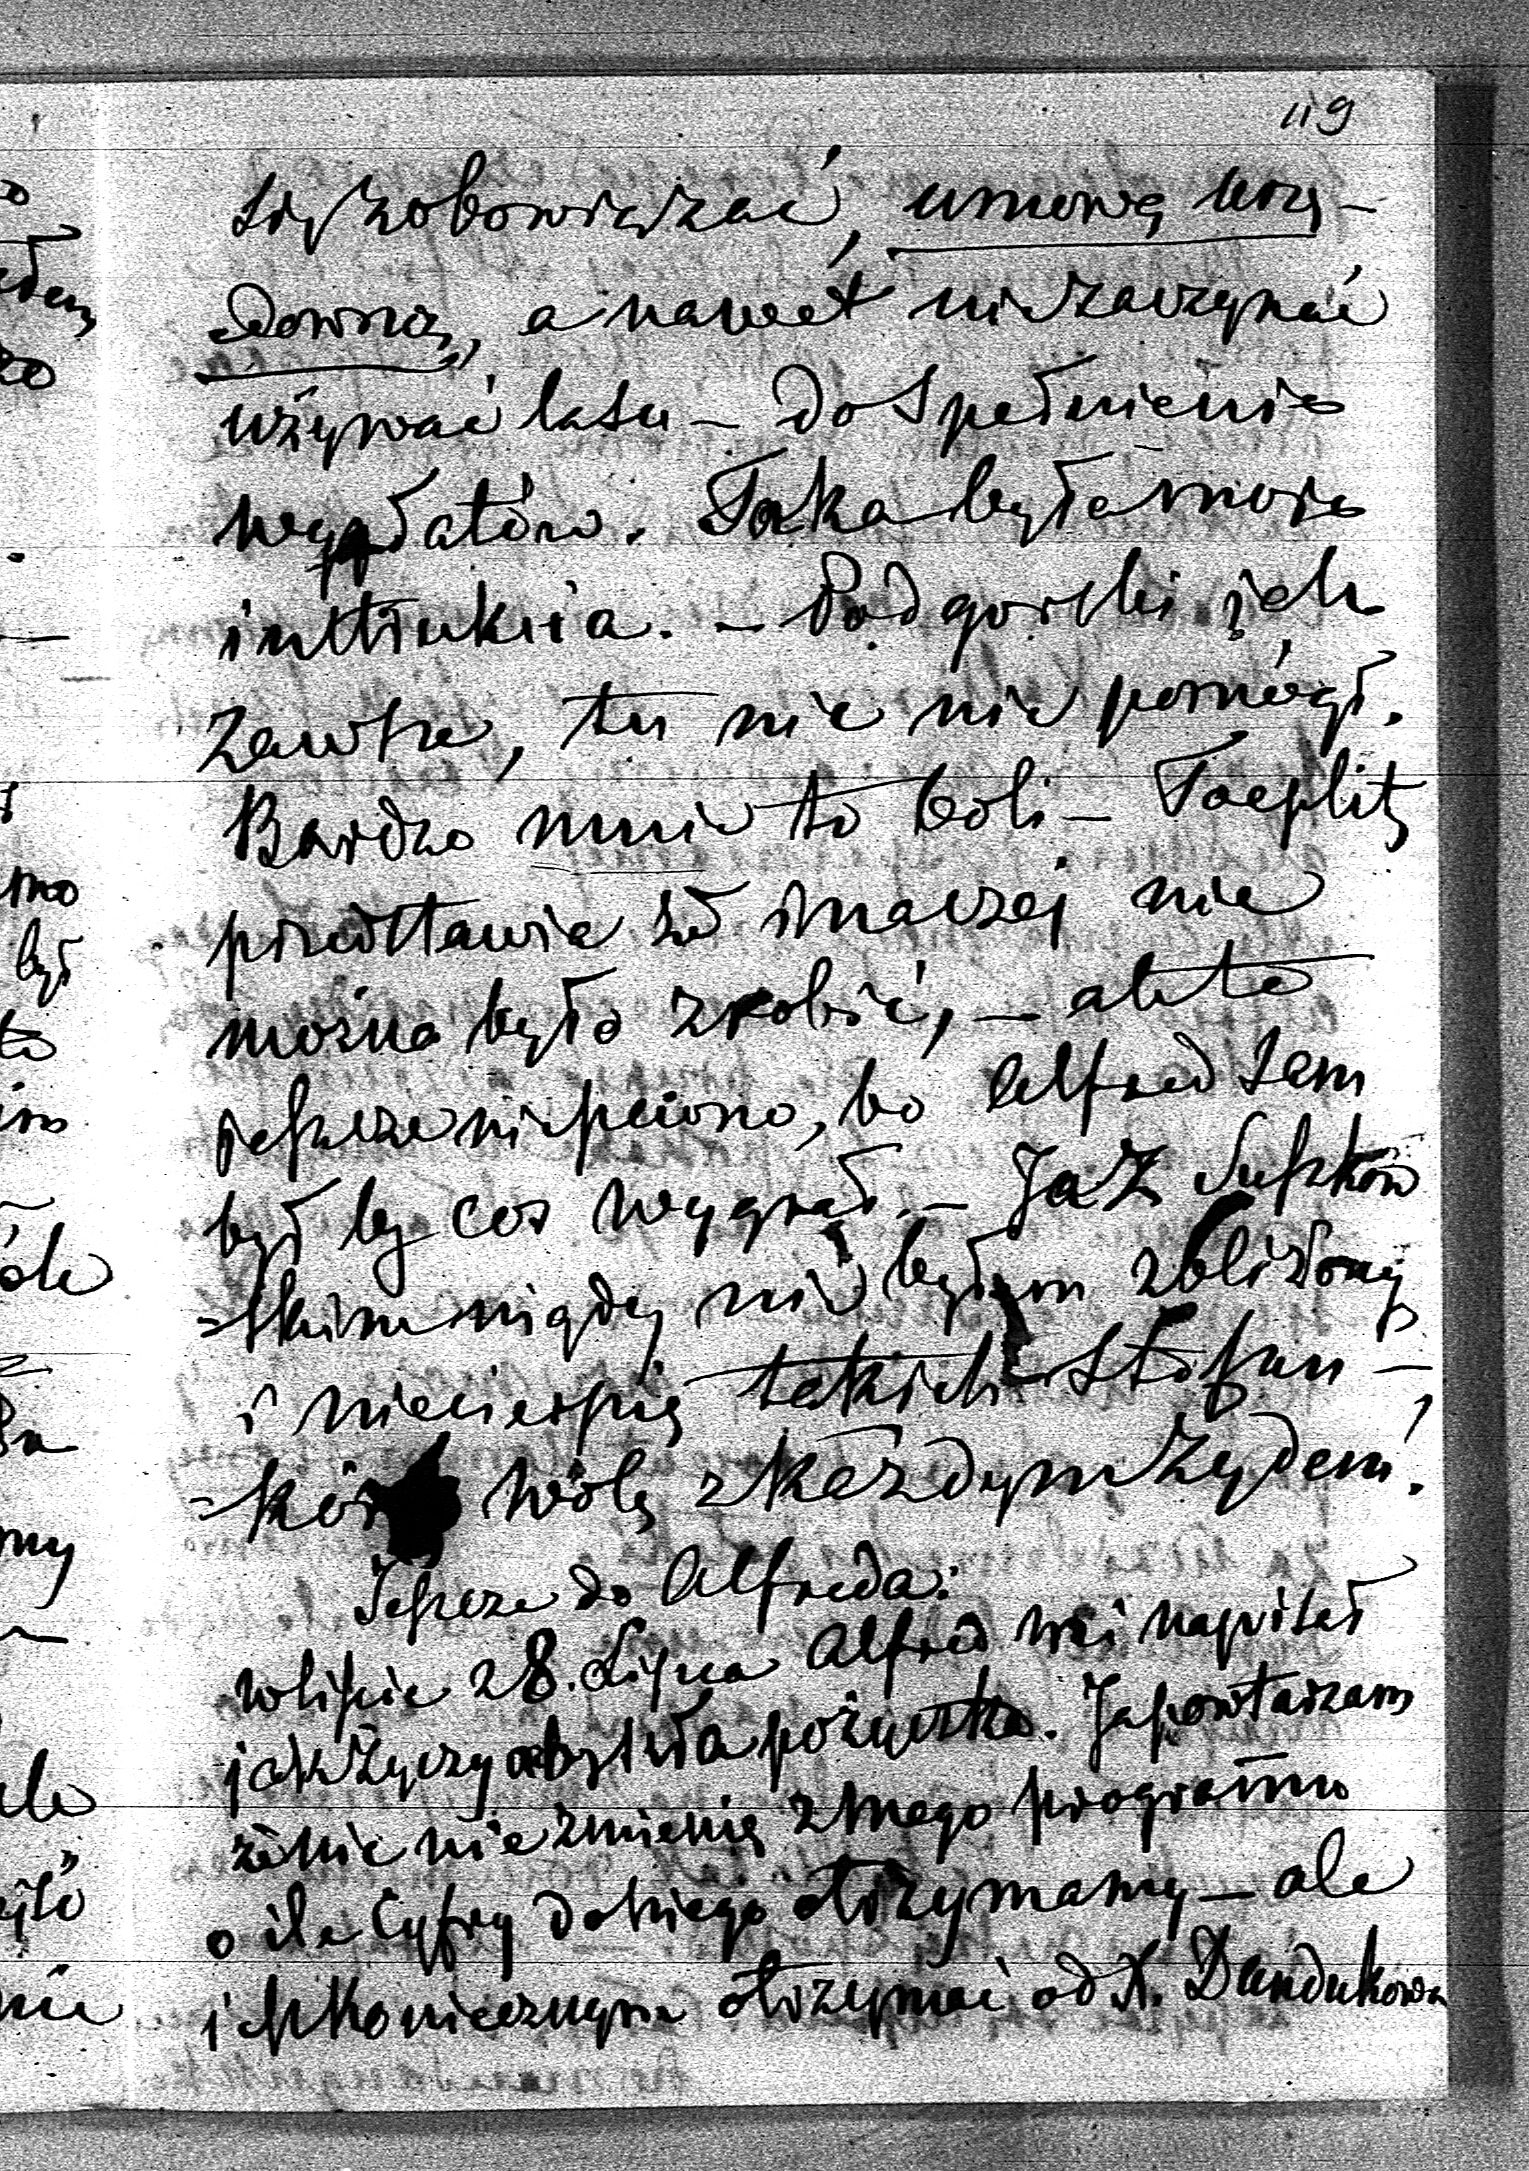 119
się zobowiązać, umową urzę-
downą, a nawet nie zaczynać
używać lasu – do spełnienia
wypłatów. Taka była moja
instrukcia. – Podgorski jak
zawsze, tu nic nie pomógł.
Bardzo mnie to boli – Toeplitz
przedstawia że inaczej nie
można było zrobić, – ale to
jeszcze nie pewno, bo Alfred sam
był by cos wygrał. – Ja z Suszkow
=skim nigdy nie byłem zbliżony
i niecierpię takich stosun-
=ków wolę z każdym Żydem!
Jeszcze do Alfreda:
w liście 28. Lipca Alfred mi napisał
jak życzy aby szła pożyczka. Ja powtarzam
że nic nie zmienię z mego programu
o ile cyfry dobiego otrzymamy – ale
jest koniecznym otrzymać od X. Dundukowa